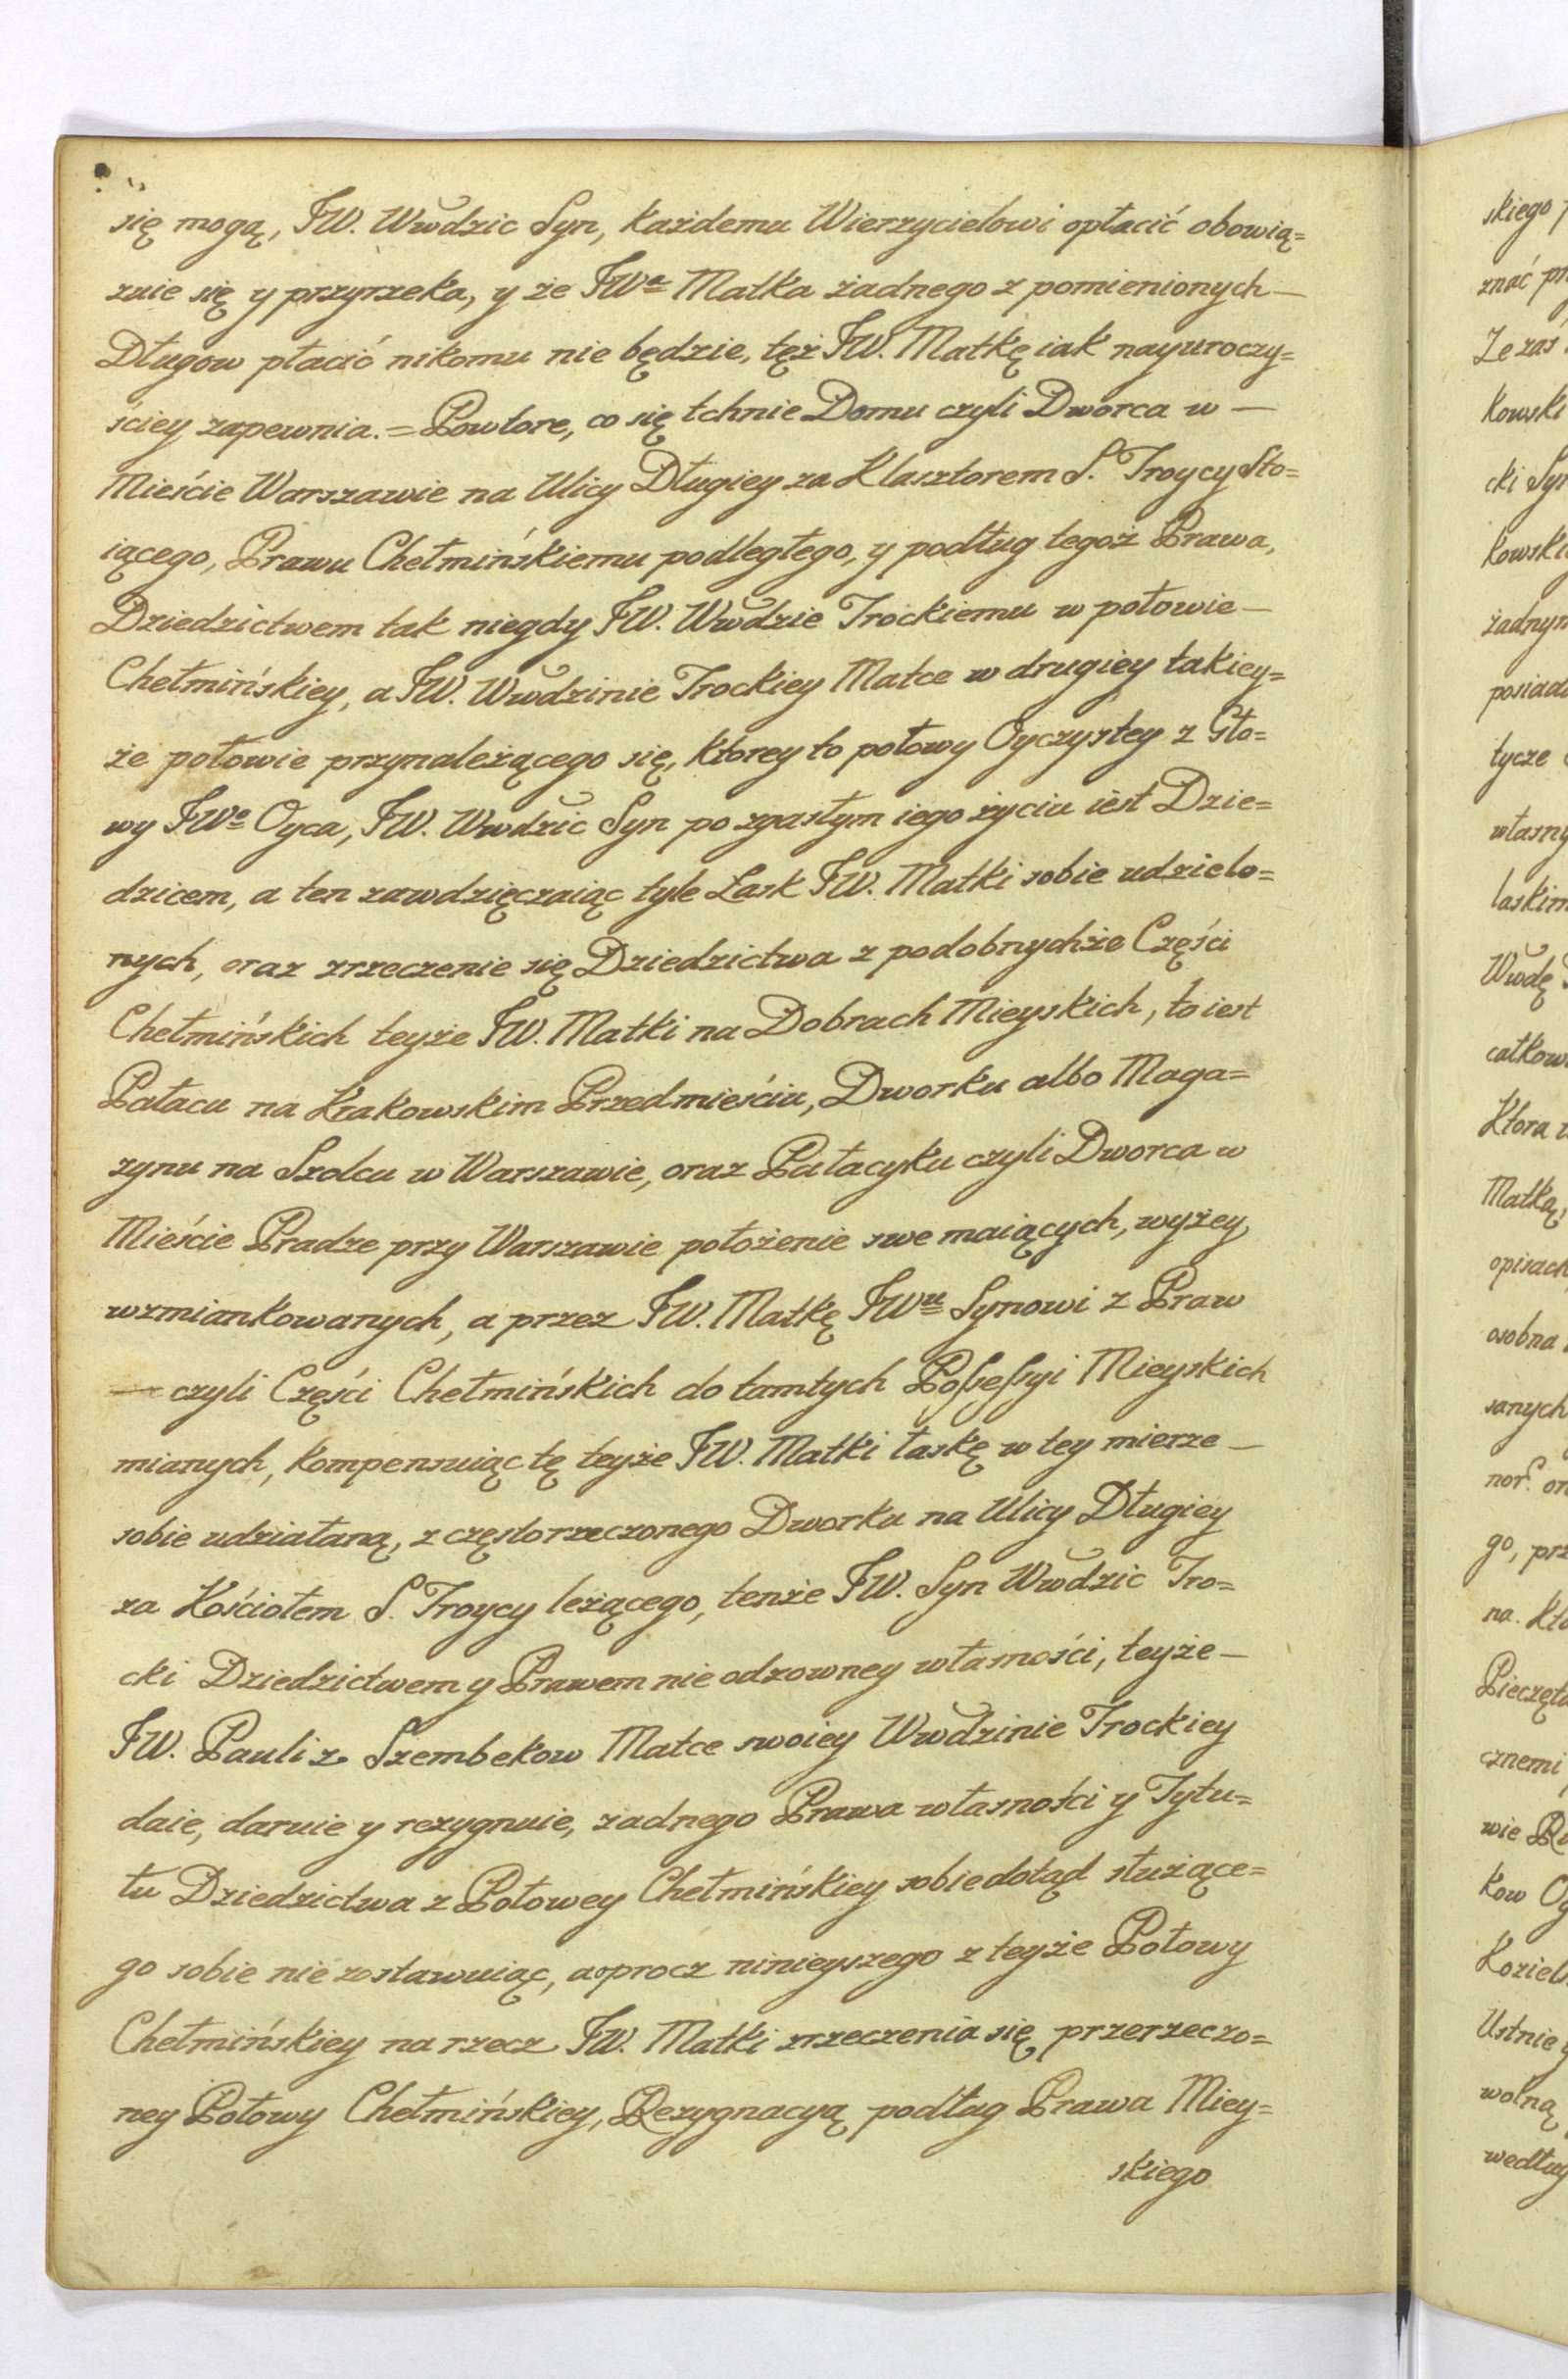 się mogą, JW. Wwdzic Syn, każdemu Wierzycielowi opłacić obowią=
zuie się y przyrzeka, y że JWa Matka żadnego z pomienionych —
Długow płacić nikomu nie będzie, tęż JW. Matkę iak nayuroczy=
ściey zapewnia. = Powtore, co się tchnie Domu czyli Dworca w —
Mieście Warszawie na Ulicy Długiey za Klasztorem S. Troycy Sto=
iącego, Prawu Chełmińskiemu podległego, y podług tegoż Prawa,
Dziedzictwem tak niegdy JW. Wwdzie Trockiemu w połowie —
Chełmińskiey, a JW. Wwdzinie Trockiey Matce w drugiey takiey=
że połowie przynależącego się, ktorey to połowy Oyczystey z Gło=
wy JWo Oyca, JW. Wwdzic Syn po zgasłym iego życiu iest Dzie=
dzicem, a ten zawdzięczaiąc tyle Łask JW. Matki sobie udzielo=
nych, oraz zrzeczenie się Dziedzictwa z podobnychże Części
Chełmińskich teyże JW. Matki na Dobrach Mieyskich, to iest
Pałacu na Krakowskim Przedmieściu, Dworku albo Maga=
zynu na Szolcu w Warszawie, oraz Pałacyku czyli Dworca w
Mieście Pradze przy Warszawie położenie swe maiących, wyżey
wzmiankowanych, a przez JW. Matkę JWu Synowi z Praw
— czyli Części Chełmińskich do tamtych Possessyi Mieyskich
mianych, kompensuiąc tę teyże JW. Matki łaskę w tey mierze —
sobie udziałaną, z częstorzeczonego Dworku na Ulicy Długiey
za Kościołem S. Troycy leżącego, tenże JW. Syn Wwdzic Tro=
cki Dziedzictwem y Prawem nie odzowney własności, teyże —
JW. Pauli z Szembekow Matce swoiey Wwdzinie Trockiey
daie, daruie y rezygnuie, żadnego Prawa własności y Tytu=
łu Dziedzictwa z Połowey Chełmińskiey sobie dotąd służące=
go sobie nie zostawuiąc, a oprocz ninieyszego z teyże Połowy
Chełmińskiey na rzecz JW. Matki zrzeczenia się przerzeczo=
ney Połowy Chełmińskiey, Rezygnacyą podług Prawa Miey=
skiego
skiego
znać
Ze zas
kowski
cki Syn
kowski
żadnym
posiada
tycze
własny
laskim
Wwdę
całkow
Ktora
Matką,
opisach
osobna
sanych
go, prz
na. Kto
Pieczęta
cznemi
wie
kow
Koziel
Ustnie
wolną
według